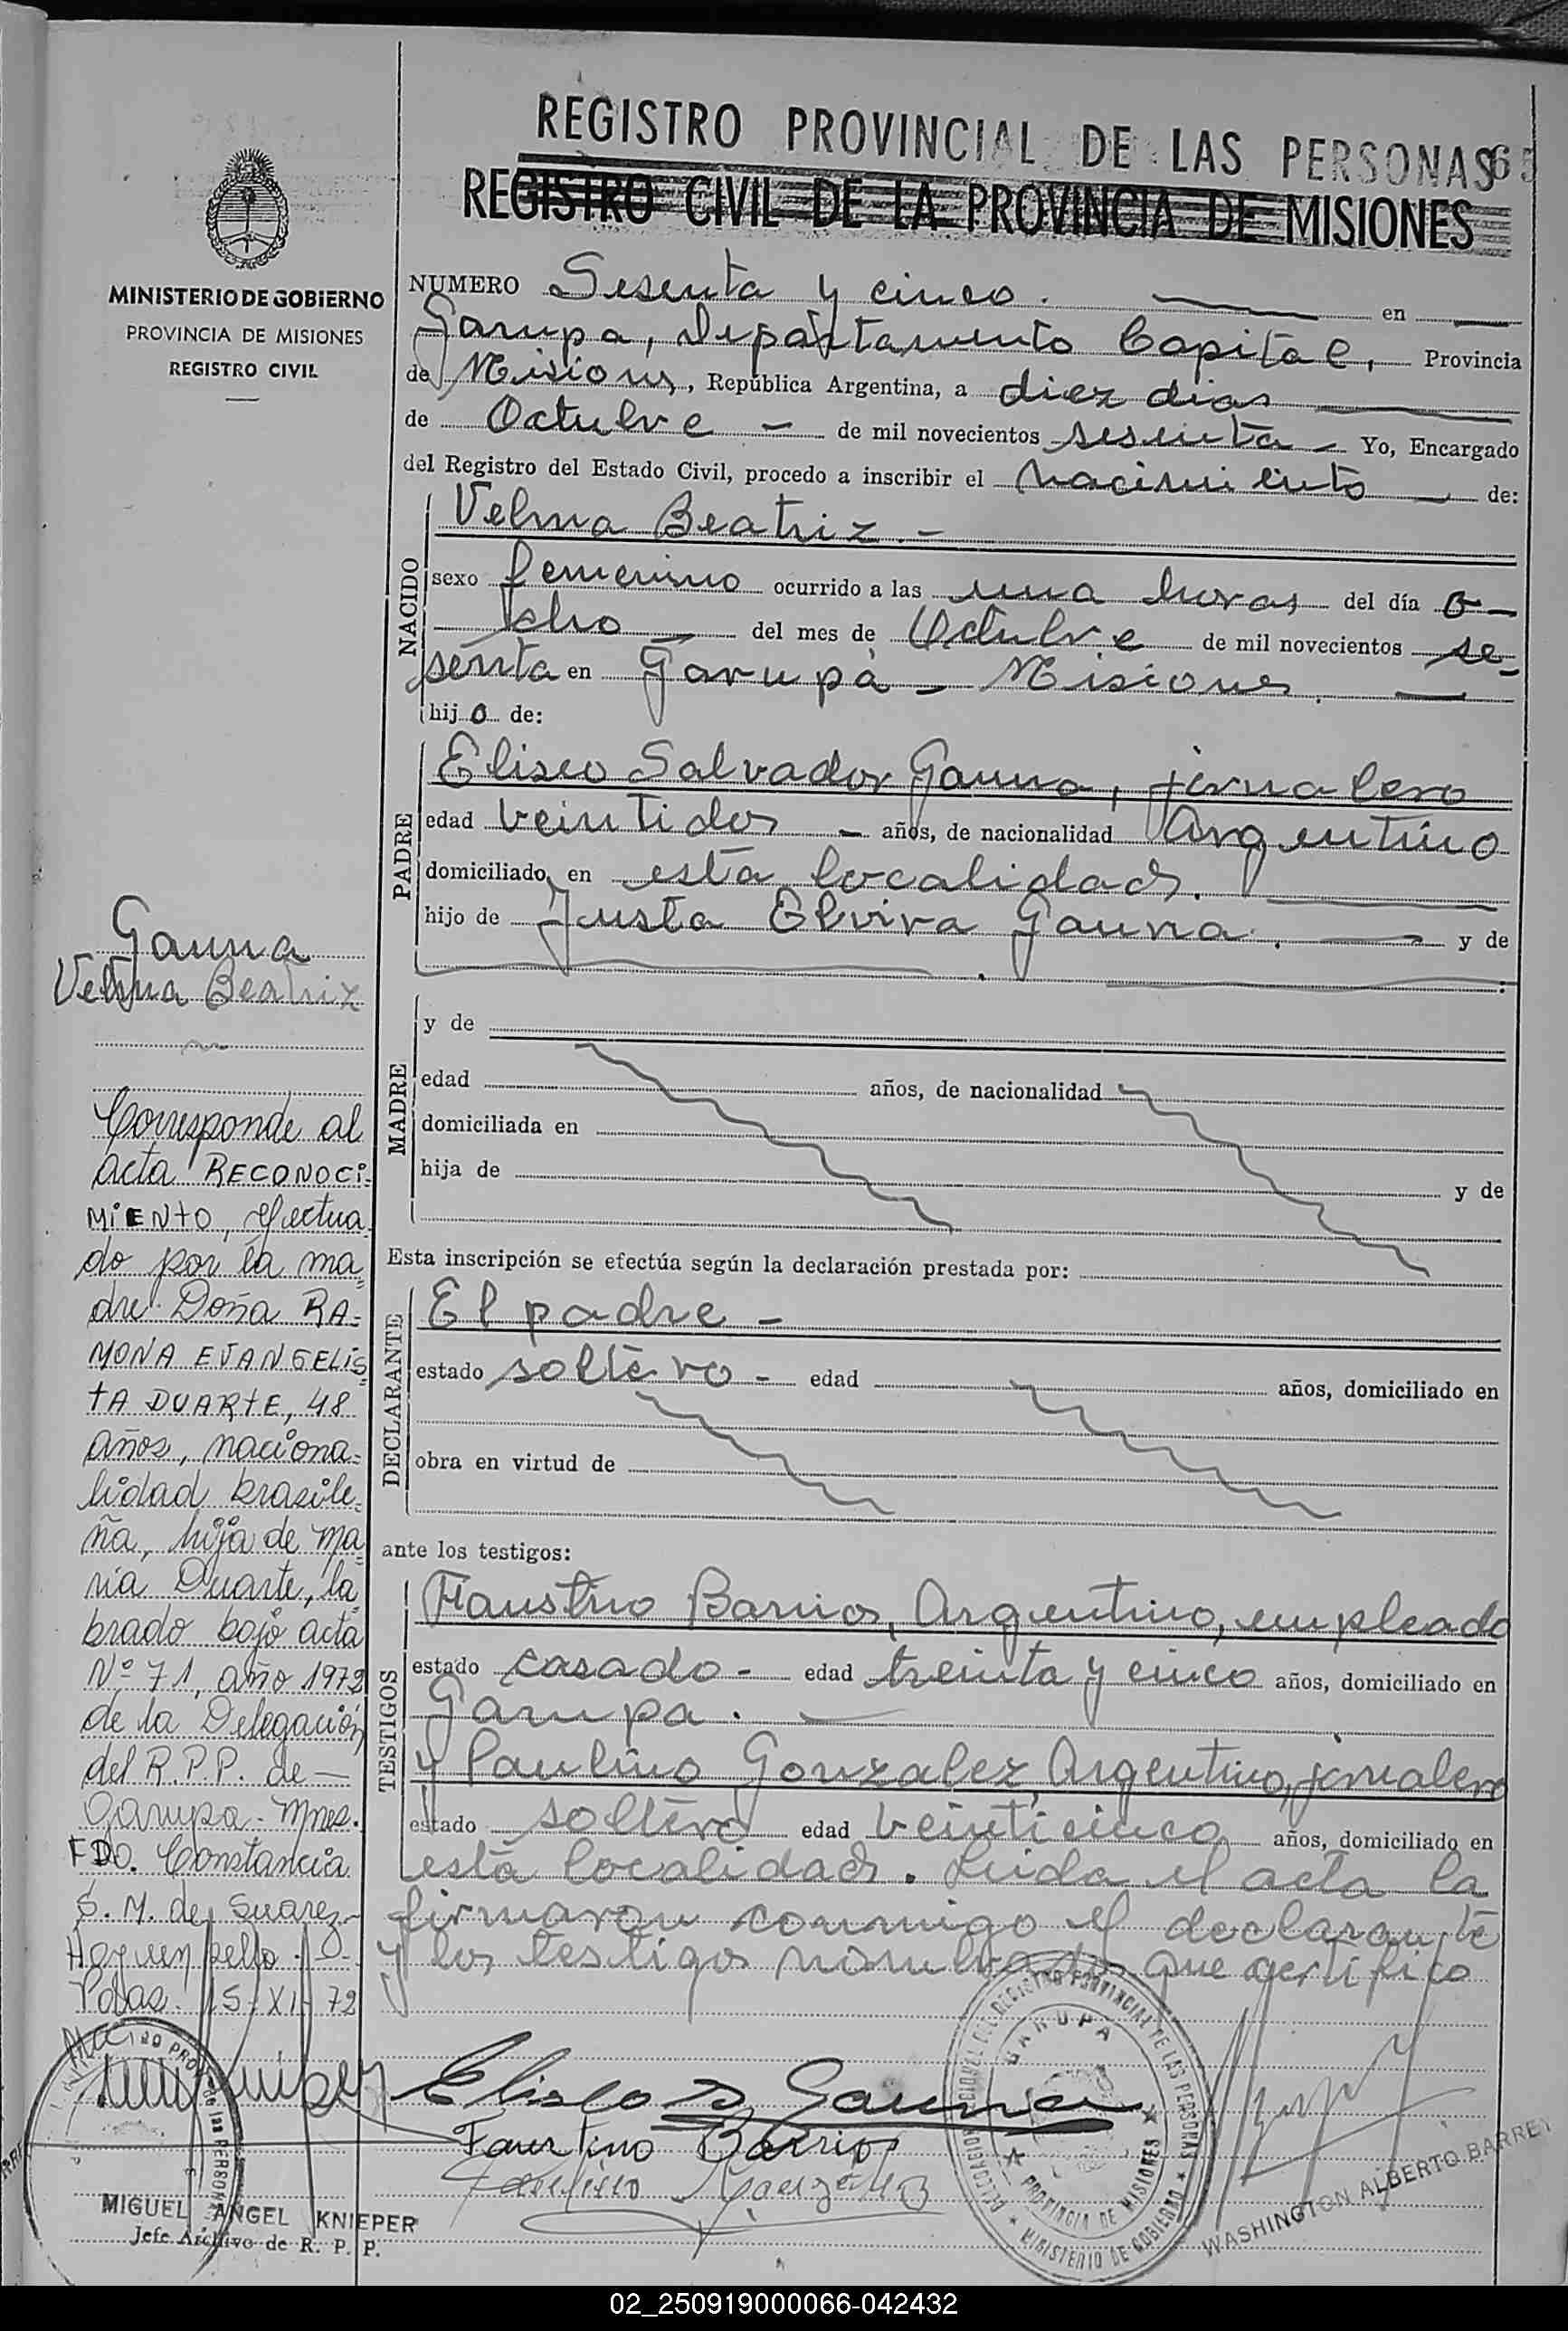 REGISTRO PROVINCIAL DE LAS PERSONAS 65
REGISTRO CIVIL DE LA PROVINCIA DE MISIONES
MINISTERIO DE GOBIERNO
PROVINCIA DE MISIONES
REGISTRO CIVIL
NUMERO Sesenta y cinco. en
Garupa, Departamento Capital, Provincia
de Misiones, República Argentina, a diez dias
de Octubre - de mil novecientos sesenta - Yo, Encargado
del Registro del Estado Civil, procedo a inscribir el nacimiento de:
NACIDO
Velma Beatriz.-
sexo femenino ocurrido a las una horas del día o-
cho del mes de Octubre de mil novecientos se-
senta en Garupá - Misiones.
hijo de:
PADRE
Eliseo Salvador Gauna, jornalero
edad veintidos - años, de nacionalidad Argentino
domiciliado en esta localidad.
hijo de Justa Elvira Gauna. y de
MADRE
y de
edad años, de nacionalidad
domiciliada en
hija de y de
Esta inscripción se efectúa según la declaración prestada por:
DECLARANTE
El padre -
estado soltero - edad años, domiciliado en
obra en virtud de
ante los testigos:
TESTIGOS
Faustino Barrios, Argentino, empleado
estado casado - edad treinta y cinco años, domiciliado en
Garupa.
y Paulino Gonzalez, Argentino, jornalero
estado soltero edad veinticinco años, domiciliado en
esta localidad. Leida el acta la
firmaron conmigo el declarante
y los testigos nombrados que certifico
Gauna
Velma Beatriz
Corresponde al
acta RECONOCI-
MIENTO, efectua-
do por la ma-
dre Doña RA-
MONA EVANGELIS-
TA DUARTE, 48
años, naciona-
lidad brasile-
ña, hija de Ma-
ria Duarte, la-
brado bajo acta
Nº 71, año 1972
de la Delegación
del R.P.P. de
Garupa - Mnes.
FDO. Constancia
S. M. de Suarez
Hay un sello.
Pdas. 15-XI-72
Eliseo S Gauna
Faustino Barrios
Paulino Gonzalez
MIGUEL ANGEL KNIEPER
Jefe Archivo de R. P. P.
DELEGACION DEL REGISTRO PROVINCIAL DE LAS PERSONAS
GARUPA
PROVINCIA DE MISIONES
MINISTERIO DE GOBIERNO
WASHINGTON ALBERTO BARREY
02_250919000066-042432